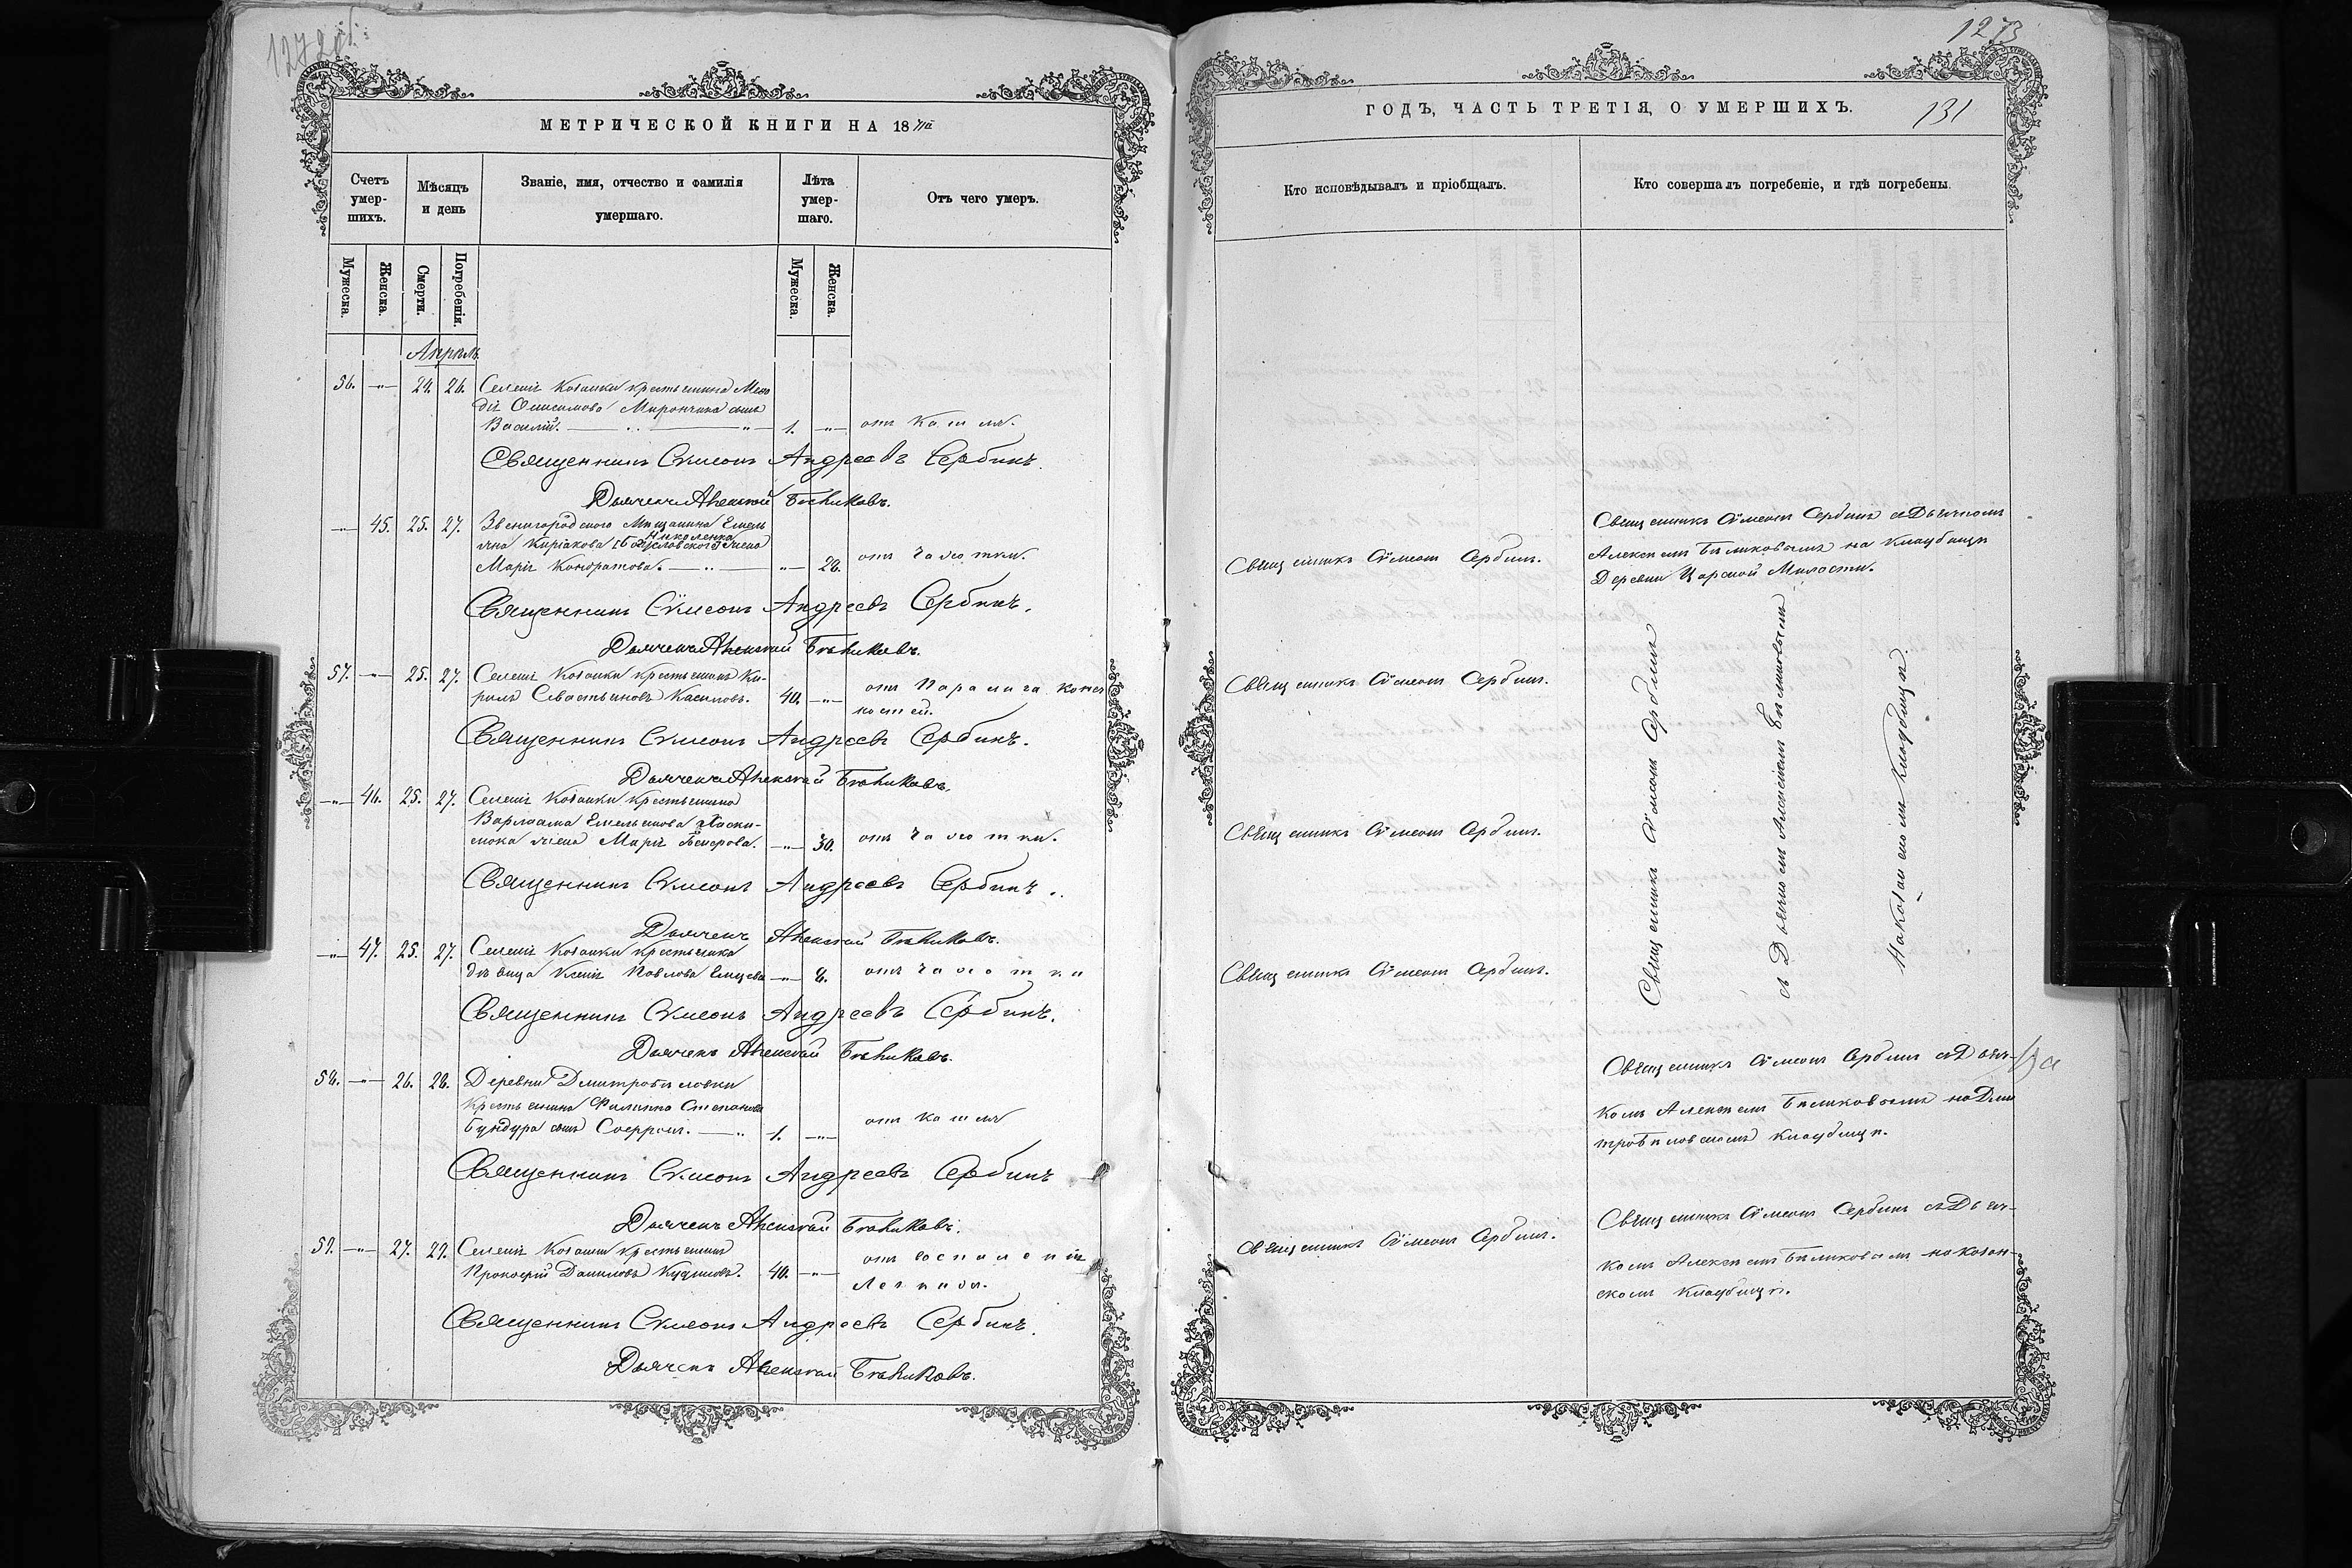 1272 об:
МЕТРИЧЕСКОЙ КНИГИ НА 18
Счетъ умер-шихъ.
Мѣсяцъ и день
Званіе, имя, отчество и фамилія умершаго.
Лѣта умер-шаго.
Отъ чего умеръ.
Мужеска.
Женска.
Смерти.
Погребенія.
Мужеска.
Женска.
Апрѣль
56. —"— 24. 26. Селенія Козанки крестьянина Мефо
дія Онисимова Мирончика сынъ
Василій. 1. —"— отъ кашля.
Священникъ Сѷмеонъ Андреевъ Сербинъ.
Дьячекъ Алексѣй Бѣликовъ.
—"— 45. 25. 27. Звенигородского Мещанина Емель
Николенка
яна Киріакова жена
Марія Кондратова. —"— 28. отъ чахотки.
Священникъ Сѷмеонъ Андреевъ Сербинъ.
Дьячекъ Алексѣй Бѣликовъ.
57. —"— 25. 27. Селенія Козанки крестьянинъ Ки-
рилъ Севастьяновъ Касимовъ. 40. —"— отъ
костей.
Священникъ Сѷмеонъ Андреевъ Сербинъ.
Дьячекъ Алексѣй Бѣликовъ.
—"— 46. 25. 27. Селенія Козанки крестьянина
Варлаама Емельянова
жена Марія —"— 30. отъ чахотки.
Священникъ Сѷмеонъ Андреевъ Сербинъ.
Дьячекъ Алексѣй Бѣликовъ.
—"— 47. 25. 27. Селенія Козанки крестьянка
дѣвица Ксенія Павлова —"— 8. отъ чахотки
Священникъ Сѷмеонъ Андреевъ Сербинъ.
Дьячекъ Алексѣй Бѣликовъ.
58. —"— 26. 28. Деревни Димитробѣловки
крестьянина Филиппа Степанова
Бундура сынъ 1. —"— отъ кашля
Священникъ Сѷмеонъ Андреевъ Сербинъ
Дьячекъ Алексѣй Бѣликовъ.
59. —"— 27. 29. Селенія Козанки крестьянинъ
Прокофій Даниловъ 40. —"— отъ воспаленія
легкихъ.
Священникъ Сѷмеонъ Андреевъ Сербинъ.
Дьячекъ Алексѣй Бѣликовъ.
1273
ГОДЪ, ЧАСТЬ ТРЕТІЯ, О УМЕРШИХЪ.
131
Кто исповѣдывалъ и пріобщалъ.
Кто совершалъ погребеніе, и гдѣ погребены.
Священникъ Сѷмеонъ Сербинъ.
Священникъ Сѷмеонъ Сербинъ съ Дьячкомъ
Алексѣемъ Бѣликовымъ на кладбищѣ
Деревни Царской Милости.
Священникъ Сѷмеонъ Сербинъ.
Священникъ Сѷмеонъ Сербинъ.
Священникъ Сѷмеонъ Сербинъ.
Священникъ Сѷмеонъ Сербинъ
съ Дьячкомъ Алексѣемъ Бѣликовымъ
на козанскомъ кладбищѣ.
Священникъ Сѷмеонъ Сербинъ съ Дьяч-
комъ Алексѣемъ Бѣликовымъ на Дми
тробѣловскомъ кладбищѣ.
Священникъ Сѷмеонъ Сербинъ.
Священникъ Сѷмеонъ Сербинъ съ Дьяч-
комъ Алексѣемъ Бѣликовымъ на козан-
скомъ кладбищѣ.